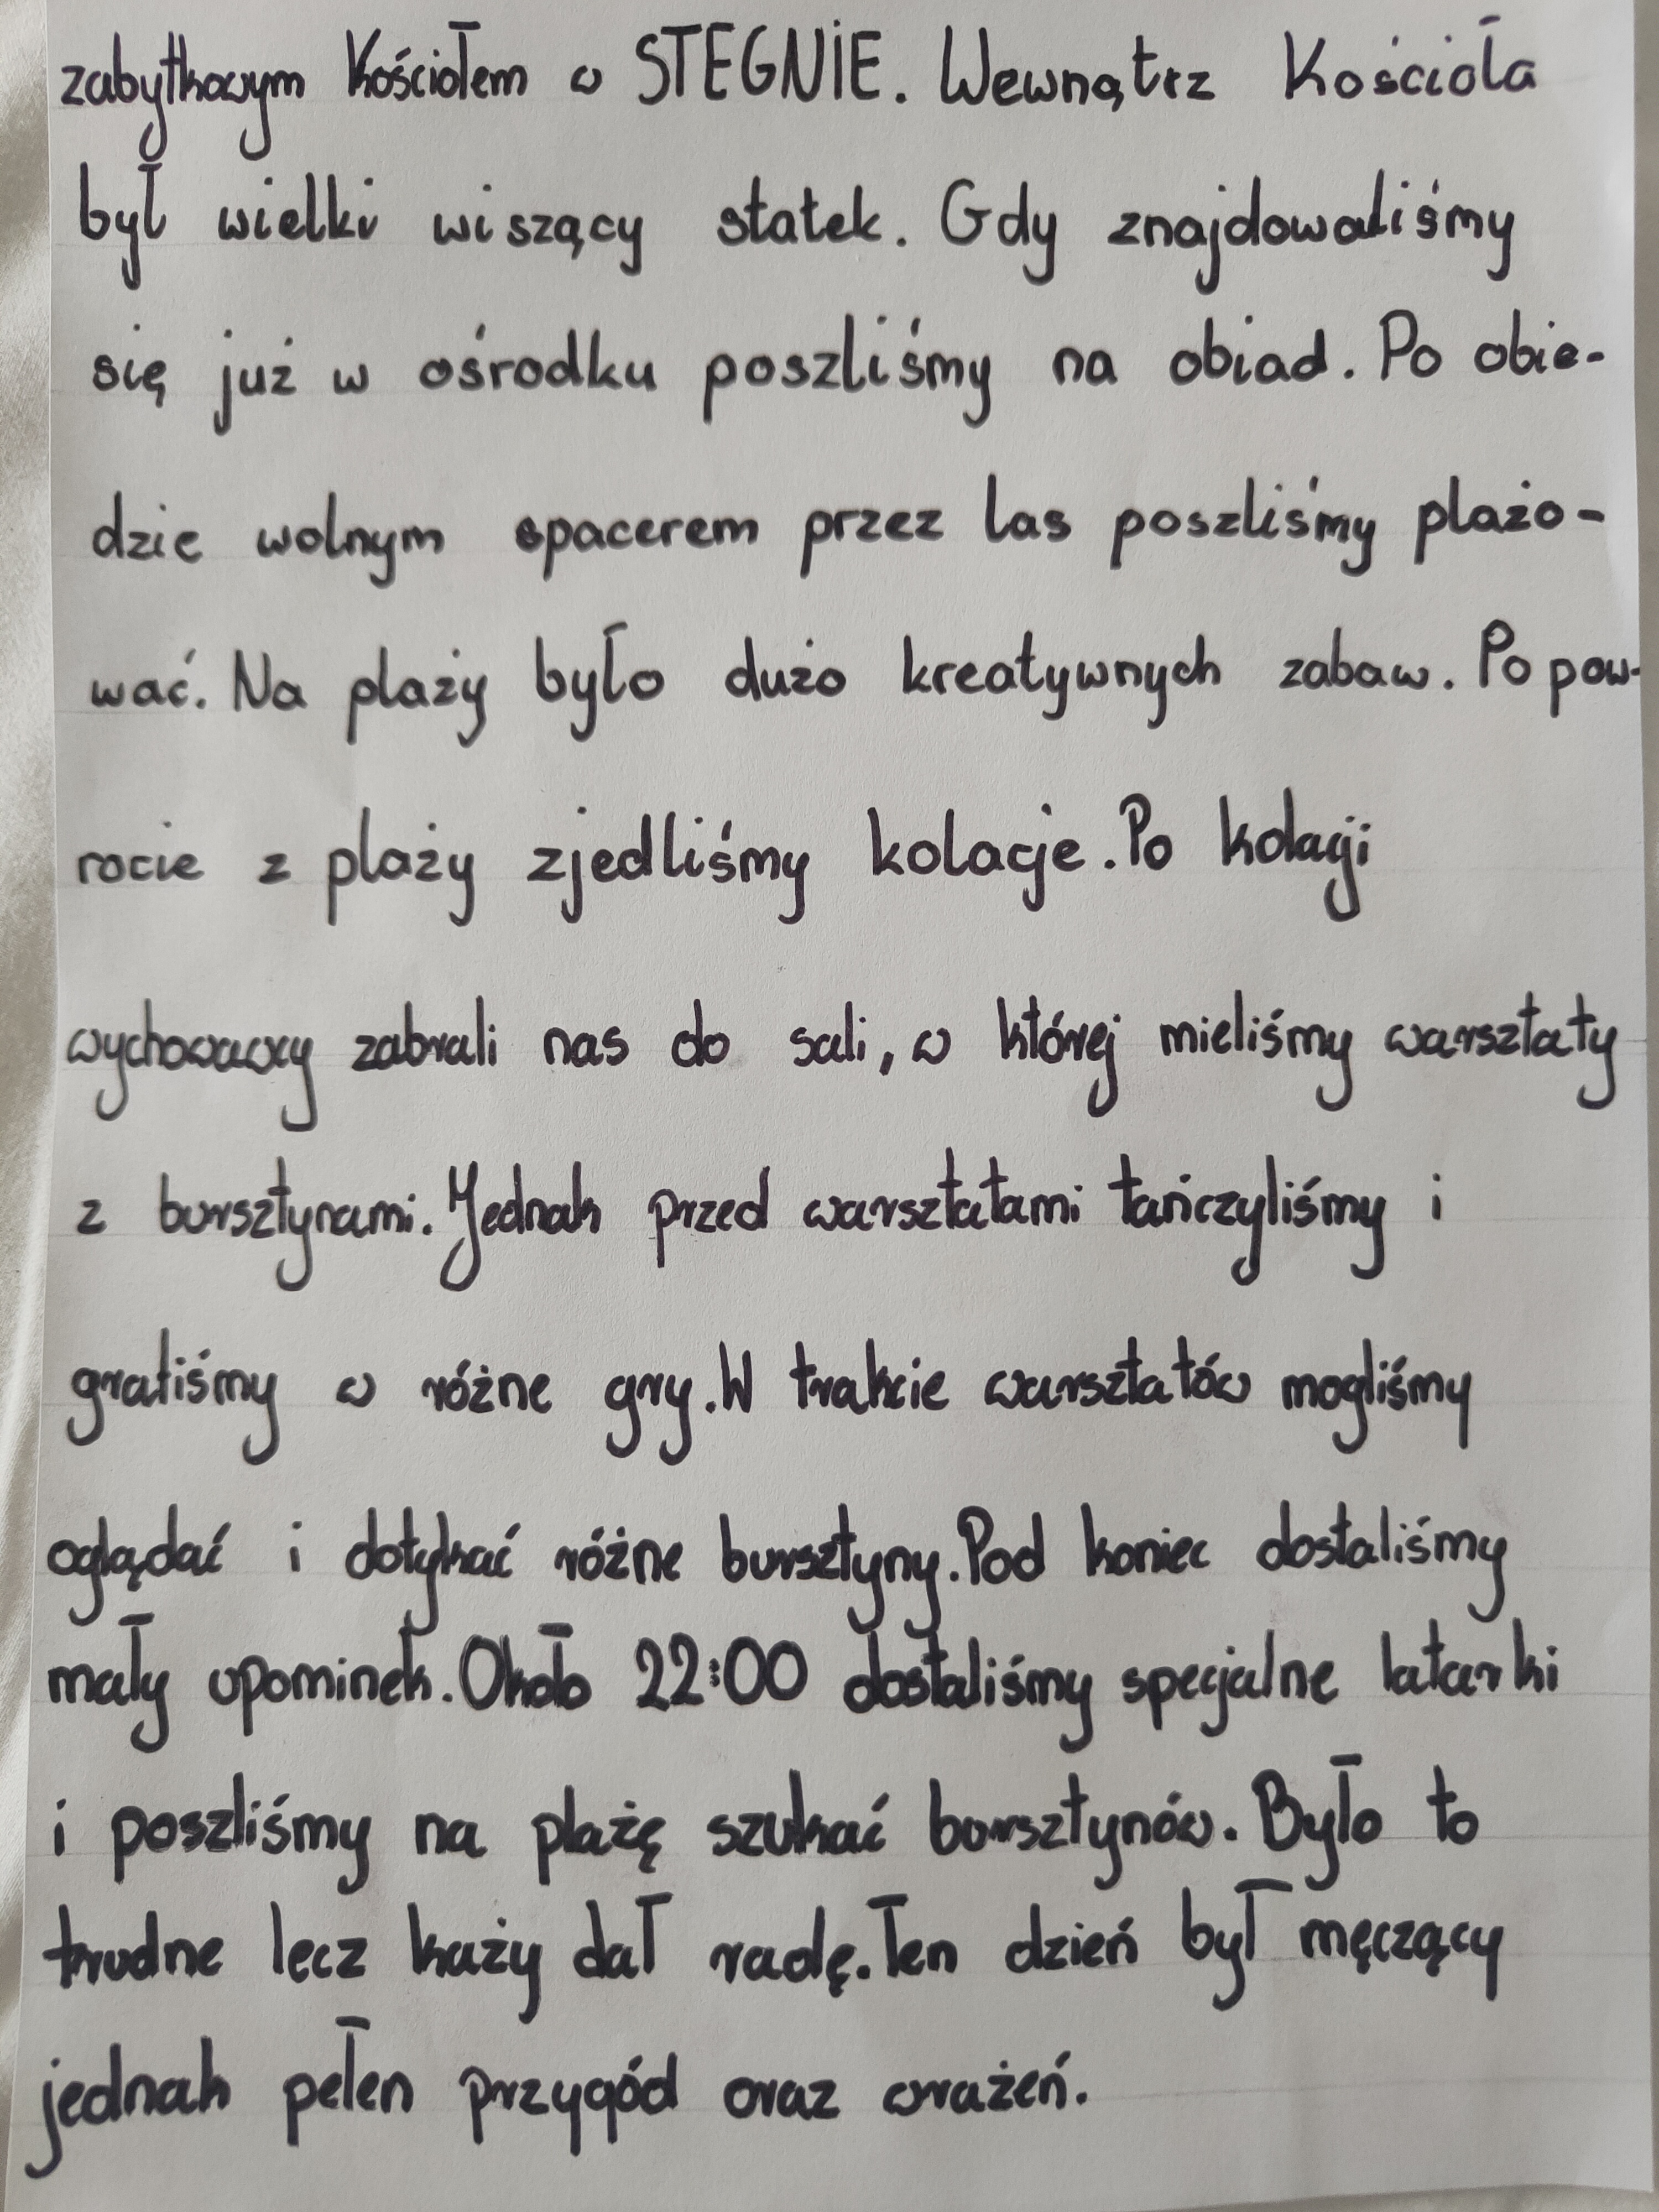 zabytkowym Kościołem w STEGNIE. Wewnątrz Kościoła
był wielki wiszący statek. Gdy znajdowaliśmy
się już w ośrodku poszliśmy na obiad. Po obie-
dzie wolnym spacerem przez las poszliśmy plażo-
wać. Na plaży było dużo kreatywnych zabaw. Po pow-
rocie z plaży zjedliśmy kolacje. Po kolacji
wychowawcy zabrali nas do sali, w której mieliśmy warsztaty
z bursztynami. Jednak przed warsztatami tańczyliśmy i
graliśmy w różne gry. W trakcie warsztatów mogliśmy
oglądać i dotykać różne bursztyny. Pod koniec dostaliśmy
mały upominek. Około 22:00 dostaliśmy specjalne latarki
i poszliśmy na plażę szukać bursztynów. Było to
trudne lecz każy dał radę. Ten dzień był męczący
jednak pełen przygód oraz wrażeń.